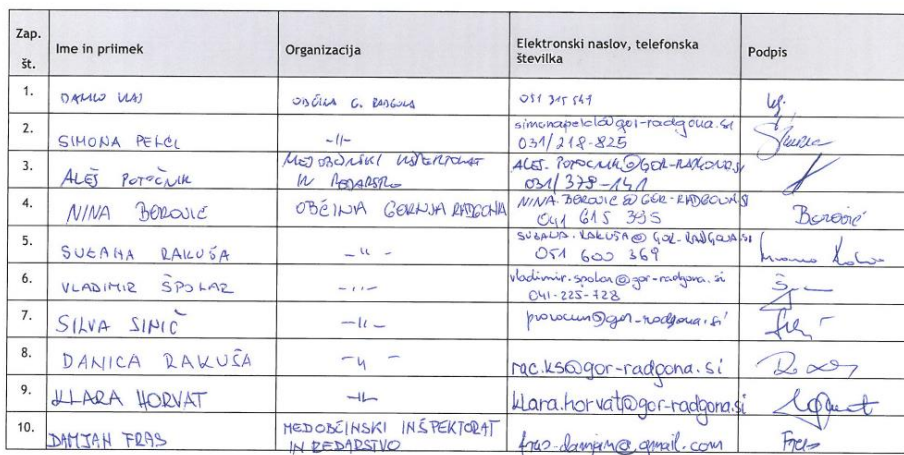 Zap. št. Ime in priimek Organizacija Elektronski naslov, telefonska številka Podpis
1. OBČINA G. RADGONA 031 315 549
2. SIMONA PELCL -11- simonapelcl@gor-radgona.si
031/218-825
3. ALEŠ POTOČNIK MEDOBČINSKI INŠPEKTORAT IN REDARSTVO ALES.POTOCNIK@GOR-RADGONA.SI
031/378-141
4. NINA BOROVIČ OBČINA GORNJA RADGONA NINA.BOROVIC@GOR-RADGONA.SI
041 615 395 Borovič
5. SUZANA RAKUŠA -11- SUZANA.RAKUSA@GOR-RADGONA.SI
051 600 369
6. VLADIMIR ŠPOLAR -11- vladimir.spolar@gor-radgona.si
041-225-728
7. SILVA SINIČ -11- @gor-radgona.si
8. DANICA RAKUŠA -11- rac.ks@gor-radgona.si
9. KLARA HORVAT -11- klara.horvat@gor-radgona.si
10. DAMJAN FRAS MEDOBČINSKI INŠPEKTORAT IN REDARSTVO fras.damjan@gmail.com Fras